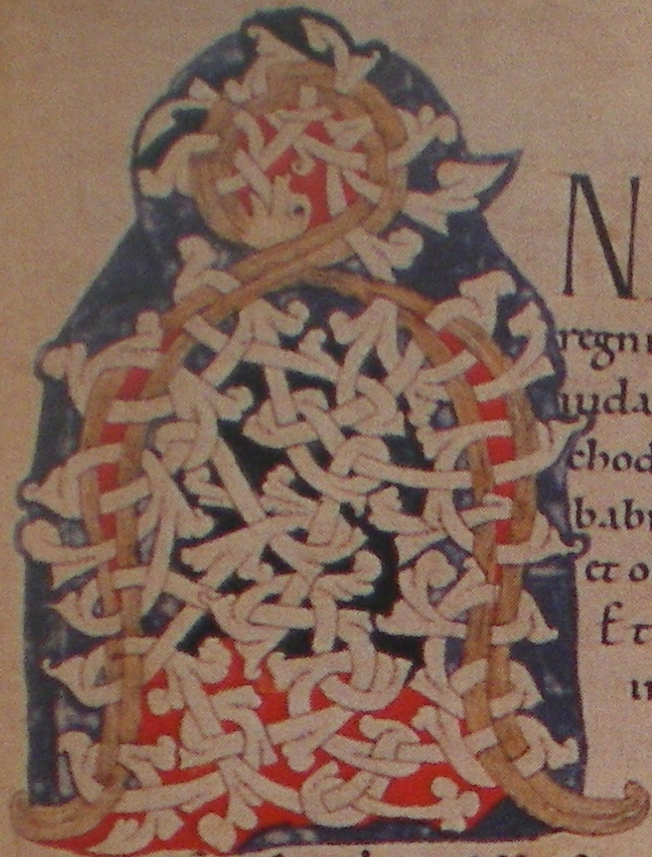 AN
regni
iuda
chod
babi
et o
Et
in